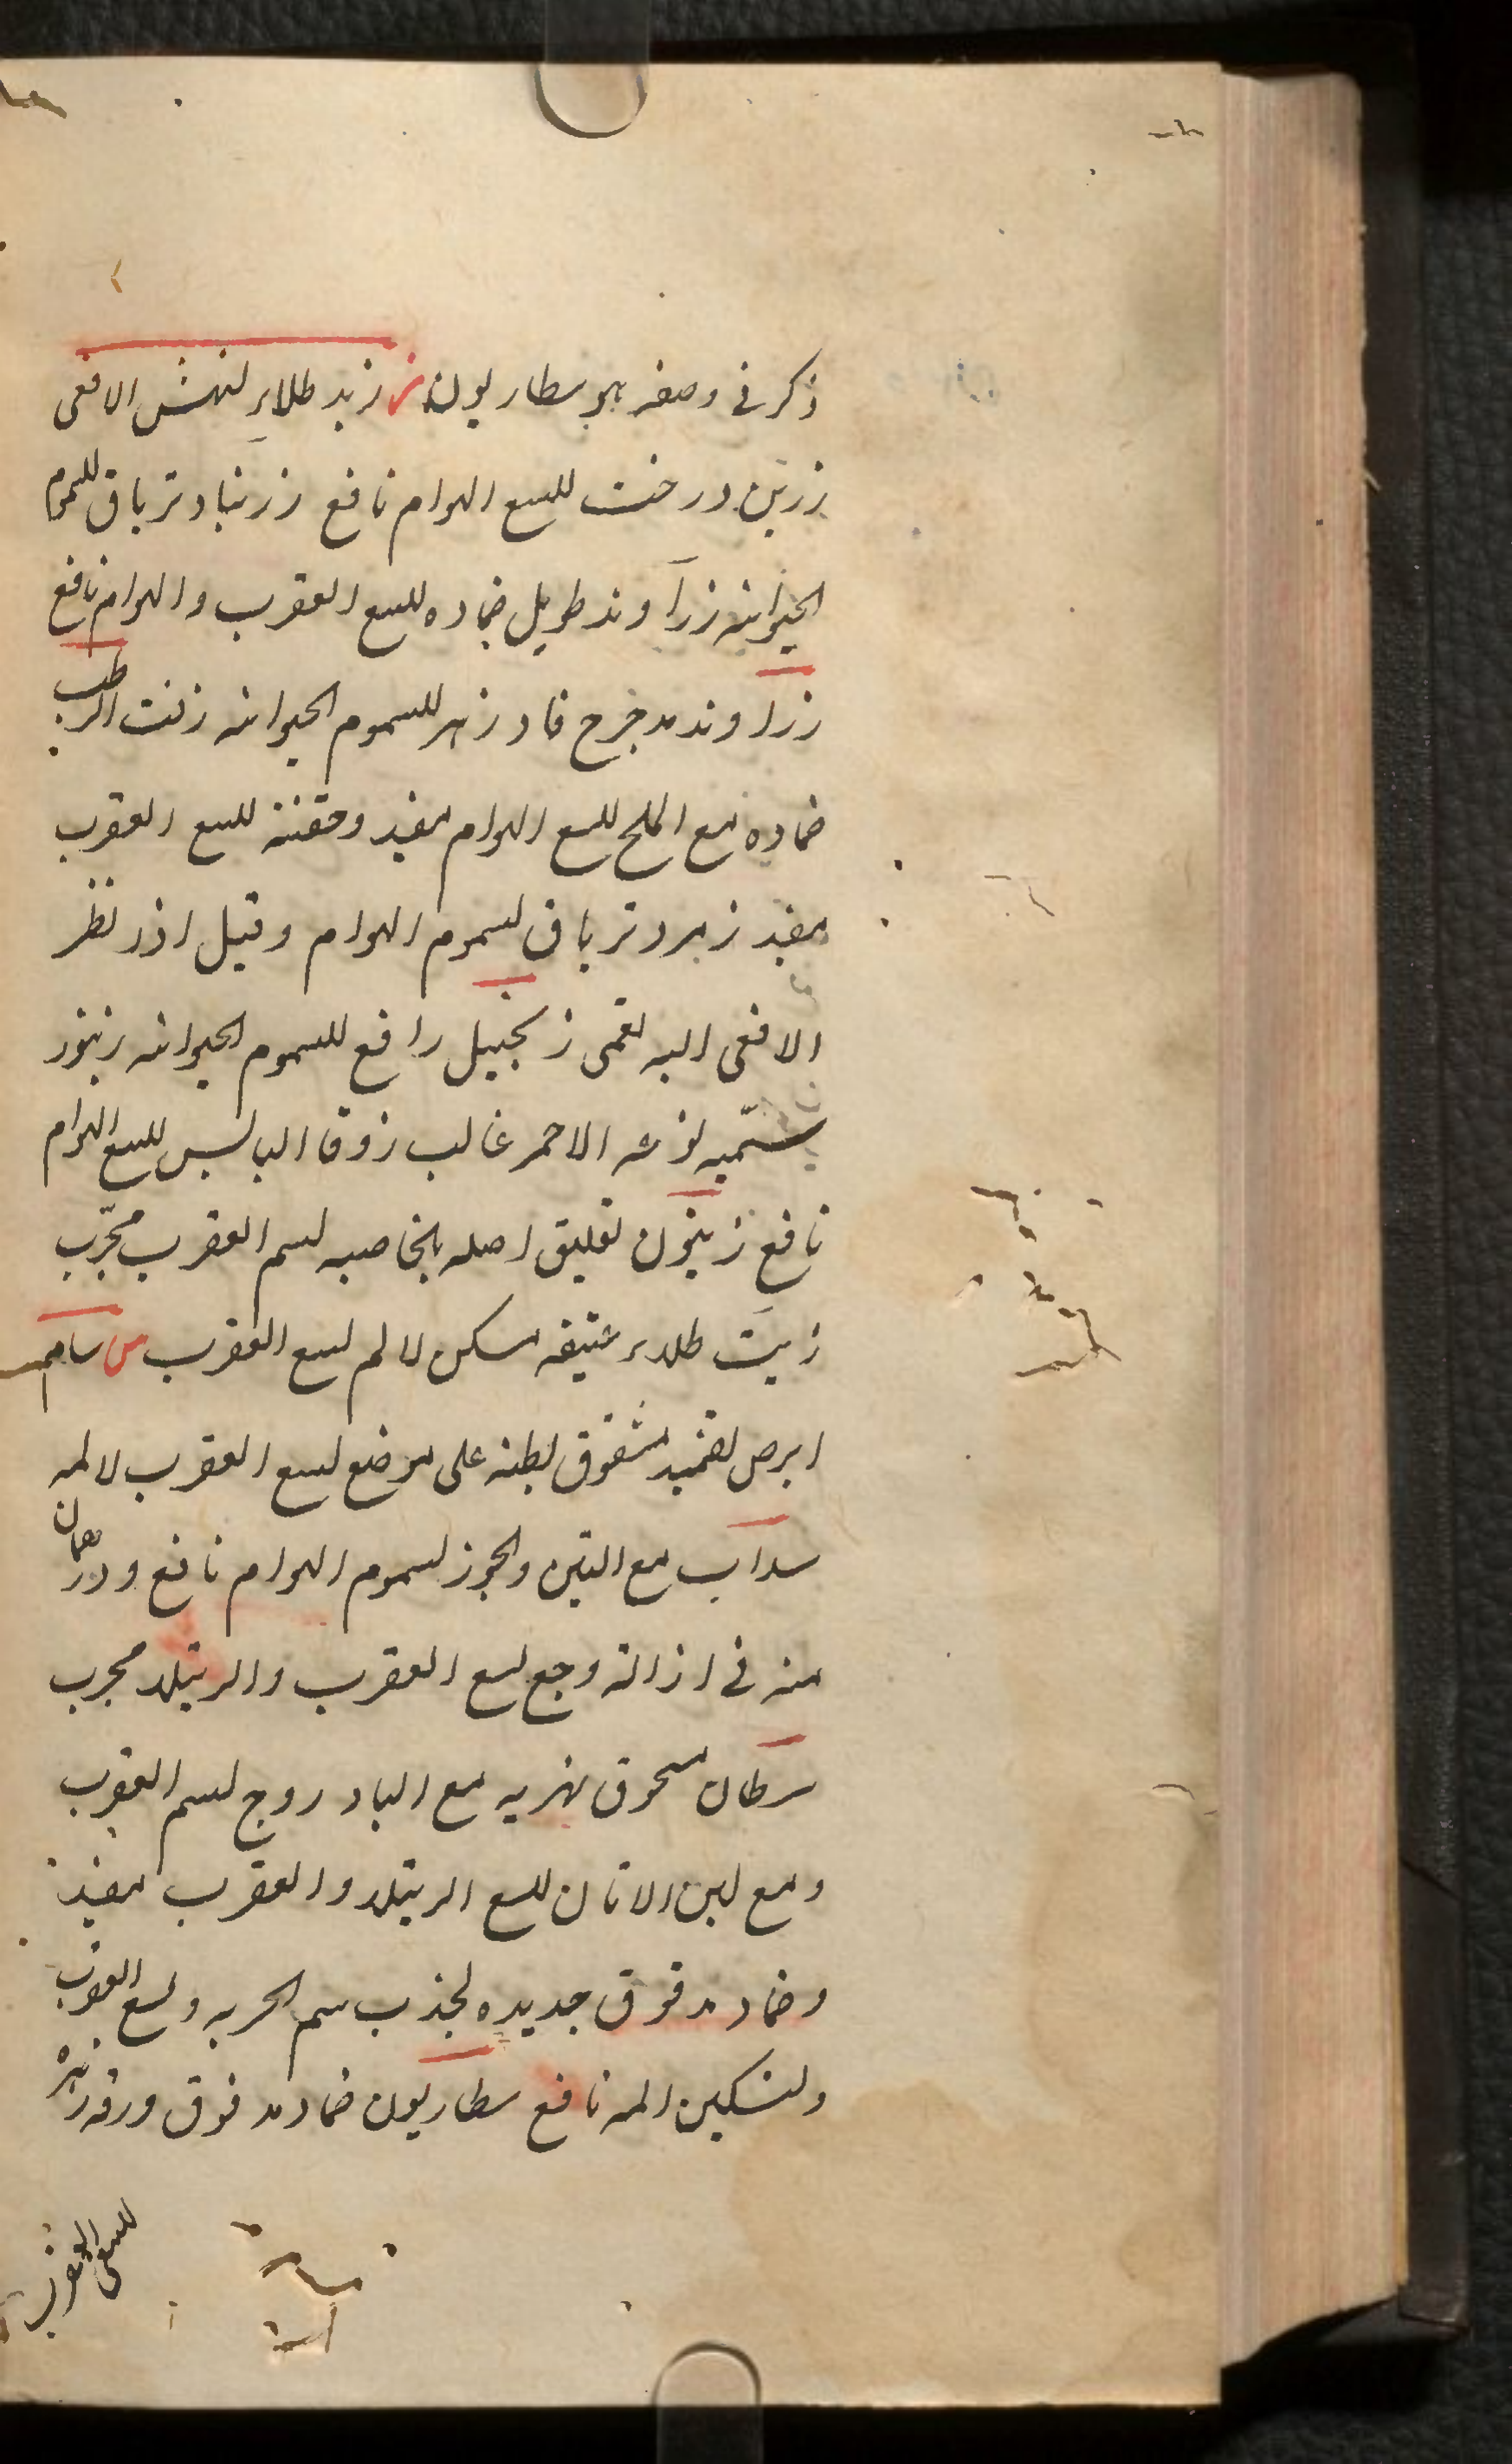 ذكر فى وصفه هو سطاريون ز زبد طلاء لنهش الافعى
زرين درخت للسع الهوام نافع زرنباد ترياق للسموم
الحيوانية زرآوند طويل ضماده للسع العقرب والهوام نافع
زراوند مدحرج فادزهر للسموم الحيوانية زفت الرطب
ضماده مع الملح للسع الهوام مفيد وحقنته للسع العقرب
مفيد زمرد ترياق لسموم الهوام وقيل اذا نظر
الافعى اليه لعمى زنجبيل رافع للسموم الحيوانية
سمّيه الاحمر غالب زوفا اليابس للسع الهوام
نافع زيتون تعليق اصله بالخاصيه لسم العقرب مجرّب
زيت طلاء عتيقه مسكن لالم لسع العقرب س سام
ابرص تضميد مشقوق بطنه على موضع لسع العقرب لالمه
سداب مع التين والجوز لسموم الهوام نافع ودرهمان
منه فى ازالة وجع لسع العقرب والرتيلا مجرب
سرطان مسحوق نهريه مع البادروج لسم العقرب
ومع لبن الاتان للسع الرتيلا والعقرب مفيد
وضماد مدقوق لجذب سم ولسع العقرب
ولتسكين المه نافع سطاريون ضماد مدقوق ورقه
للسع العقرب